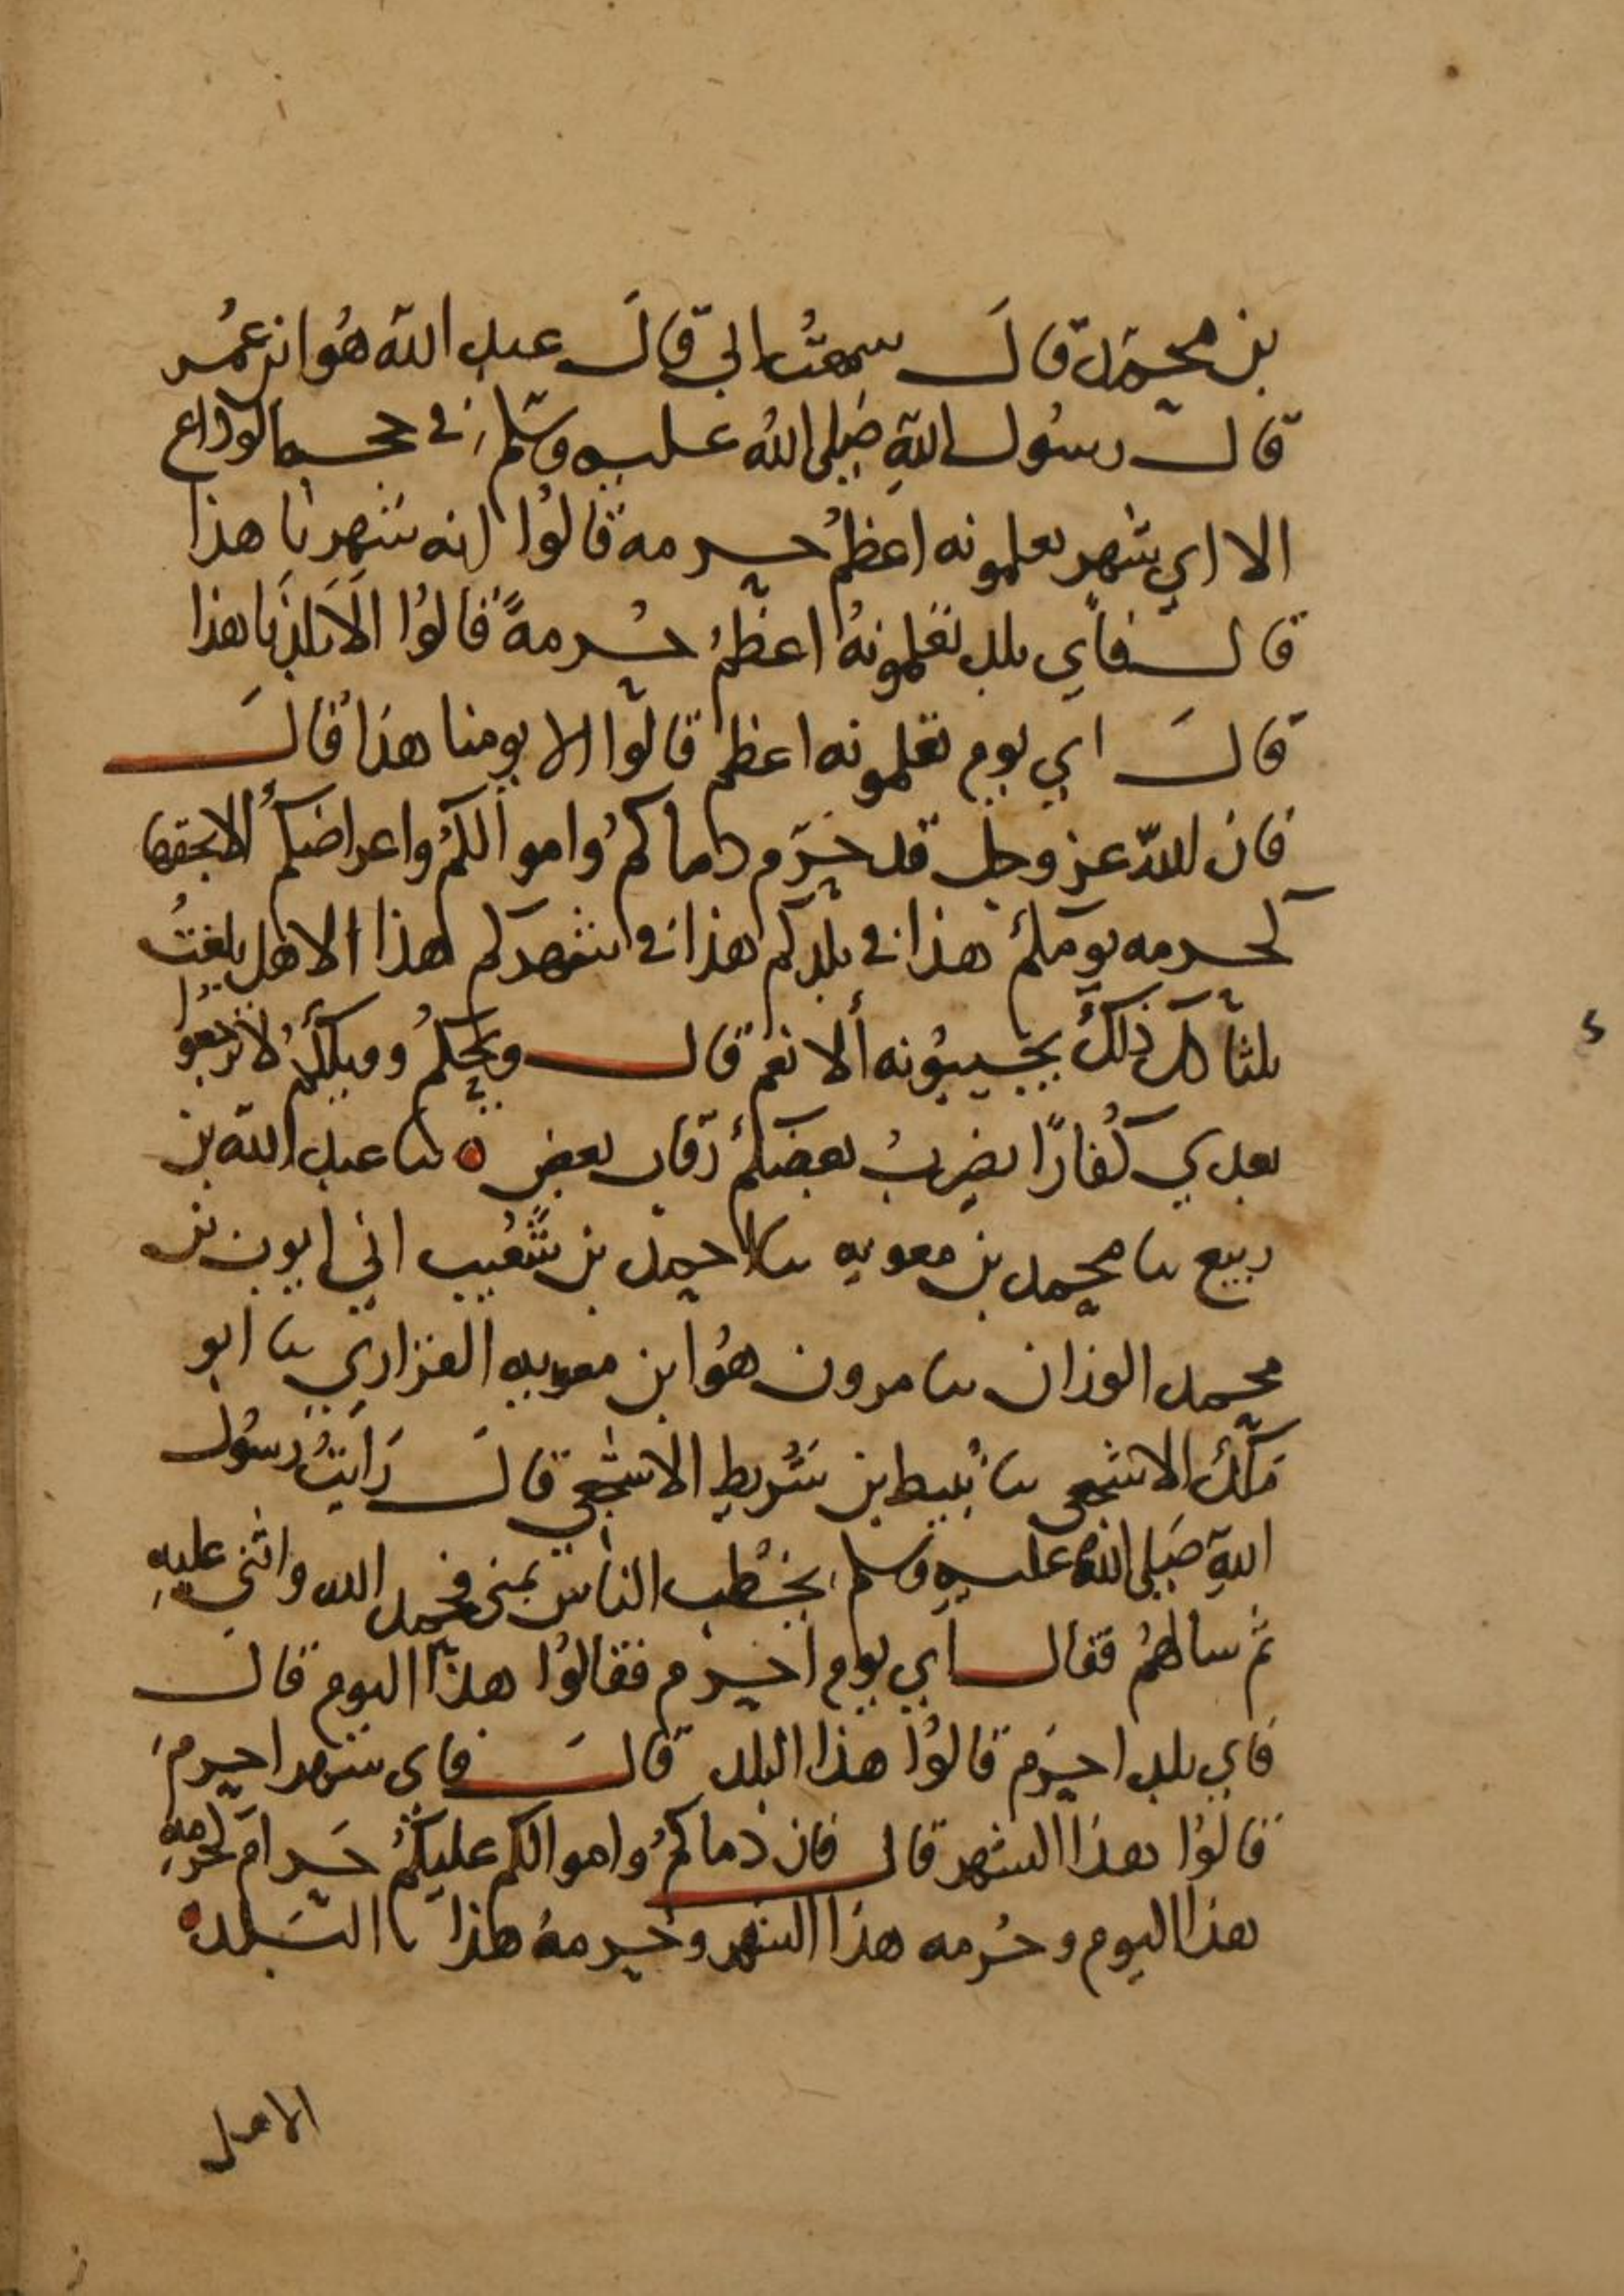 بن محمد قال سمعت ابي قال عبد الله هو ابن عمر
قال رسول الله صلى الله عليه وسلم في حجة الوداع
الا اي شهر تعلمونه اعظم حرمه قالوا انه شهرنا هذا
قال فاي بلد تعلمونه اعظم حرمةً قالوا الا بلدنا هذا
قال اي يوم تعلمونه اعظم قالوا الا يومنا هذا قال
فان الله عز وجل قد حرم دماكم واموالكم واعراضكم الا بحقها
كحرمه يومكم هذا في بلدكم هذا في شهركم هذا الا هل بلغت
ثلثا كل ذلك يجيبونه ألا نعم قال ويحكم وويلكم لا ترجعوا
بعدي كفارًا يضرب بعضكم رقاب بعض ثنا عبد الله بن
ربيع ثنا محمد بن معويه ثنا احمد بن شعيب اني ايوب بن
محمد الوزان ثنا مرون هو ابن معويه الفزاري ثنا ابو
مالك الاشجعي ثنا نبيط بن شريط الاشجعي قال رايت رسول
الله صلى الله عليه وسلم يخطب الناس بمنى فحمد الله واثنى عليه
ثم سالهم فقال اي يوم احرم فقالوا هذا اليوم قال
فاي بلد احرم قالوا هذا البلد قال فاي شهر احرم
قالوا هذا الشهر قال فان دماكم واموالكم عليكم حرام كحرمه
هذا اليوم وحرمه هذا الشهر وحرمه هذا البلد